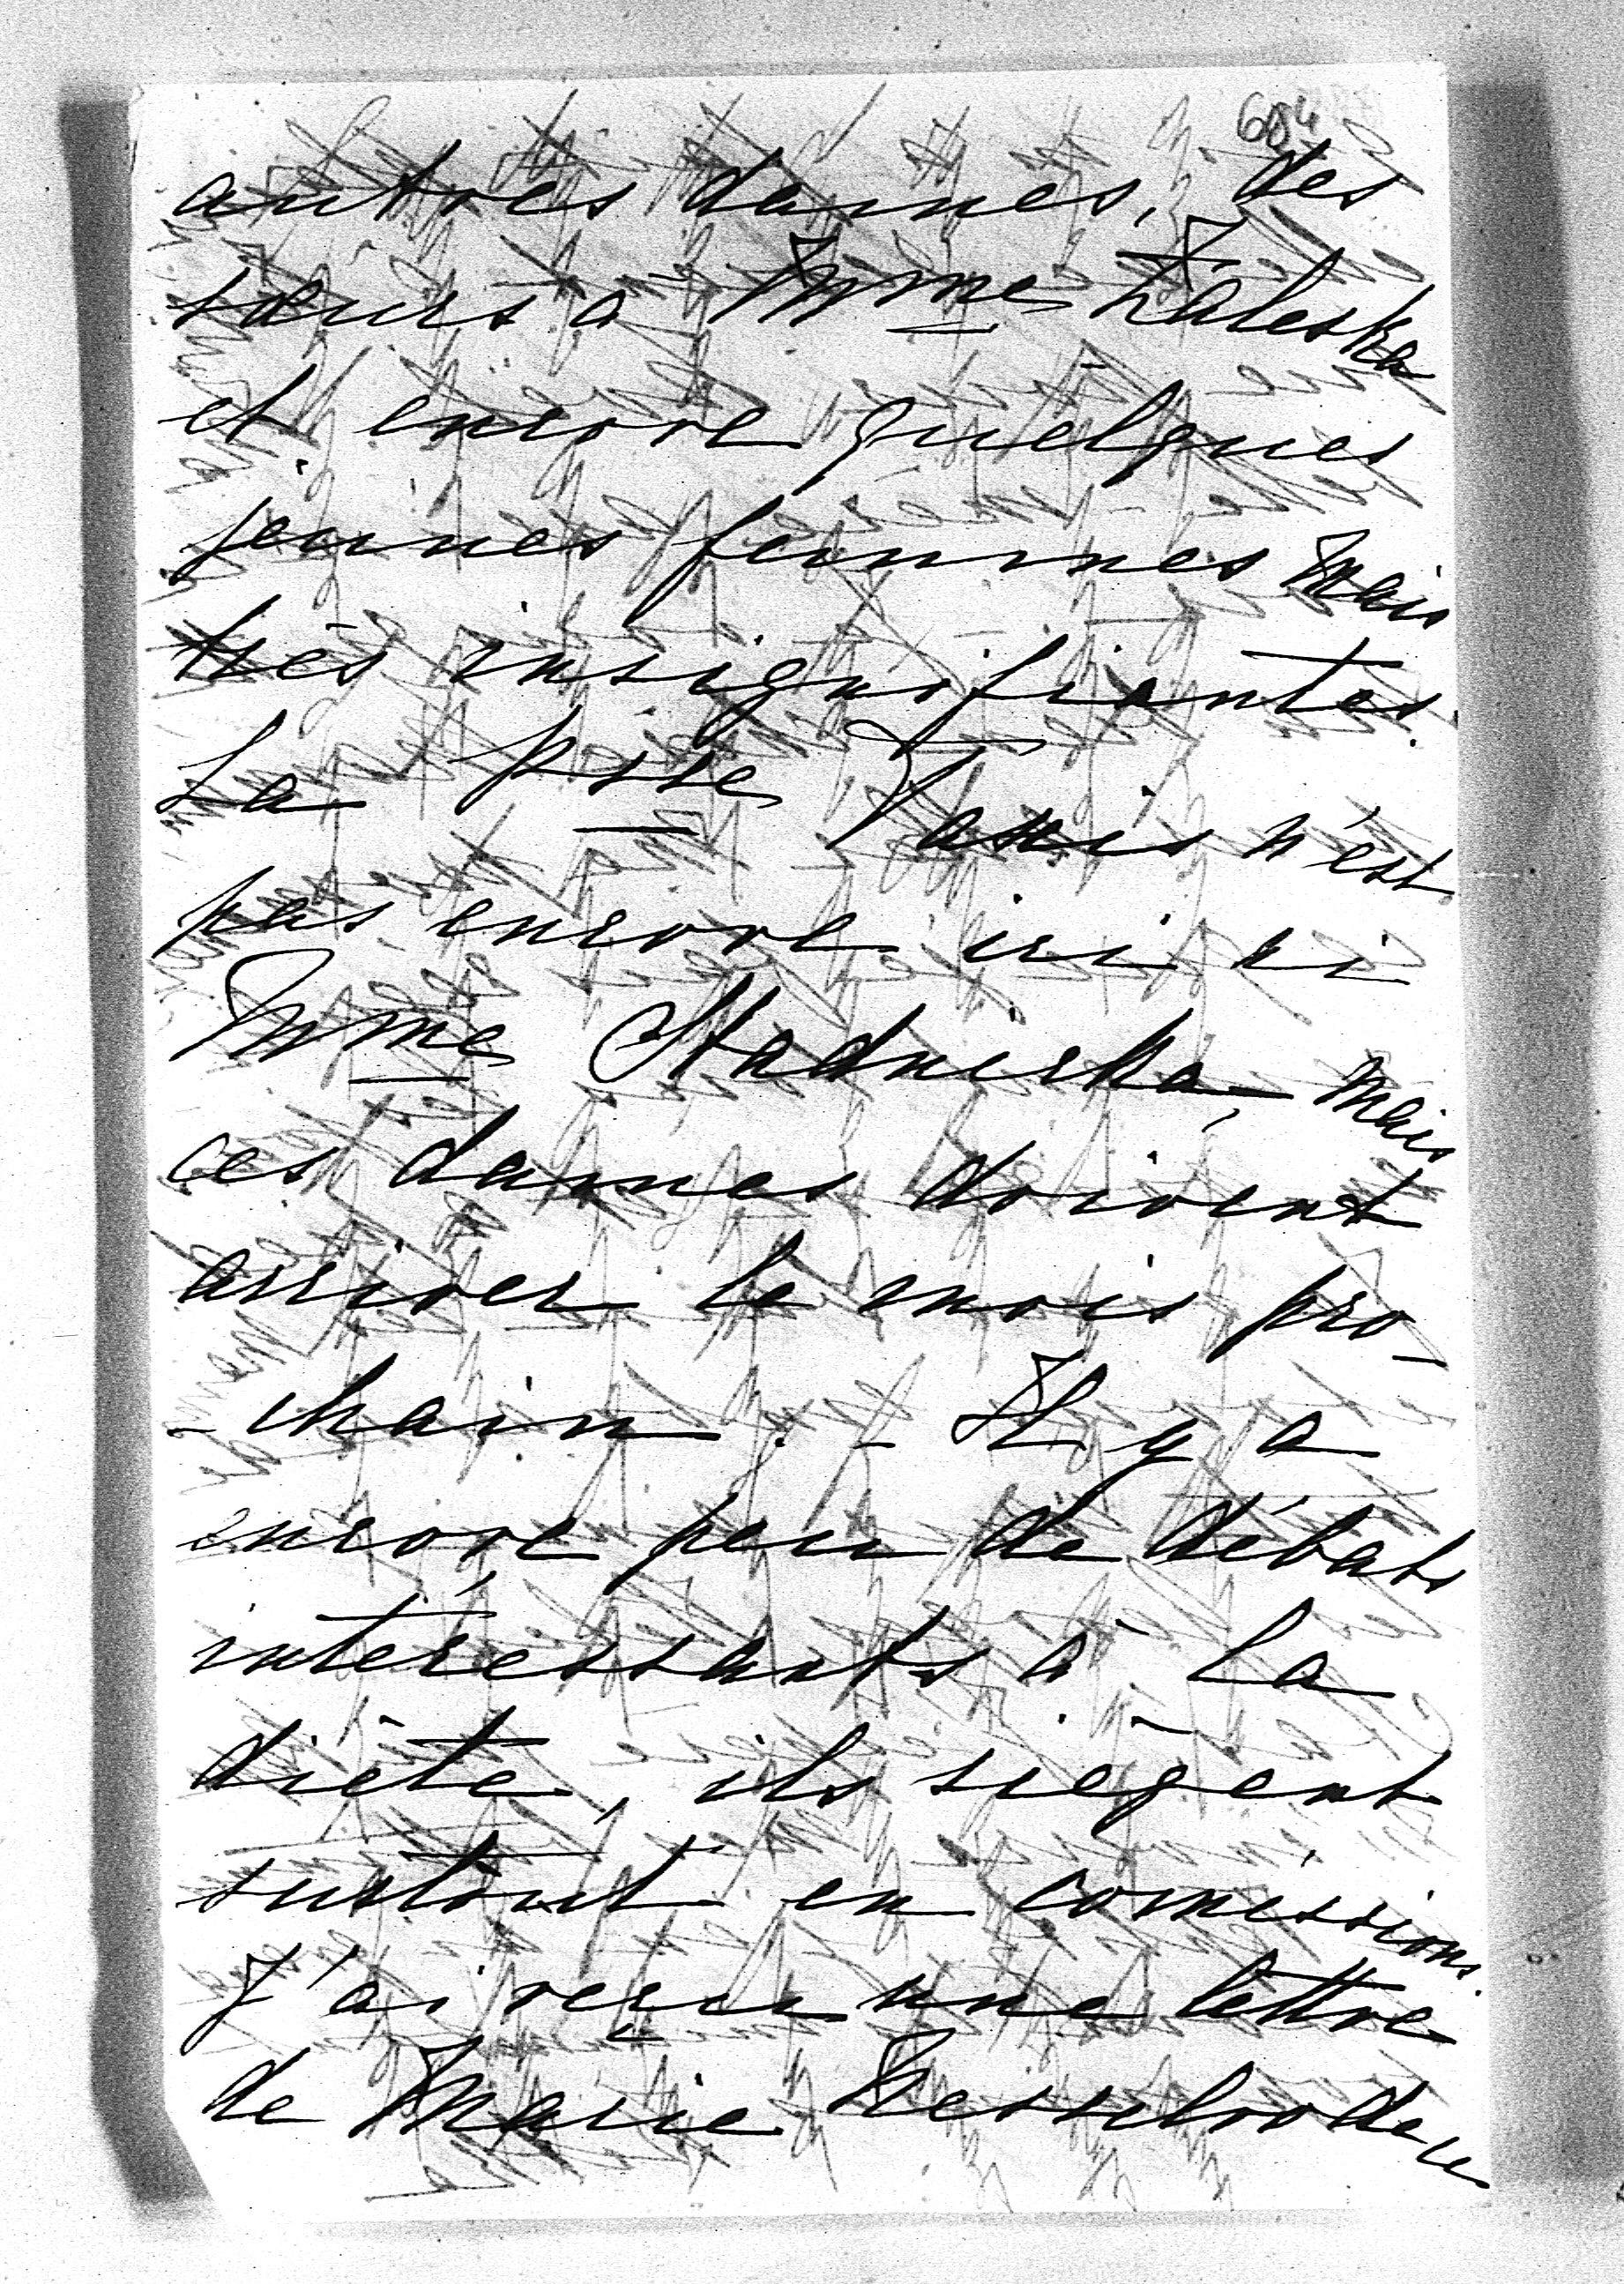 604
autres dames, des
sœurs à Mme Zaleska
et encore quelques
jeunes femmes mais
très insignifiantes.
La Psse Taxis n'est
pas encore ici ni
Mme Stadnicka, mais
ces dames doivent
arriver le mois pro-
-chain. - Il y a
encore peu de débats
intéressants à la
diète, ils siègent
surtout en comissions.
J'ai reçu une lettre
de Marie Nesselrode